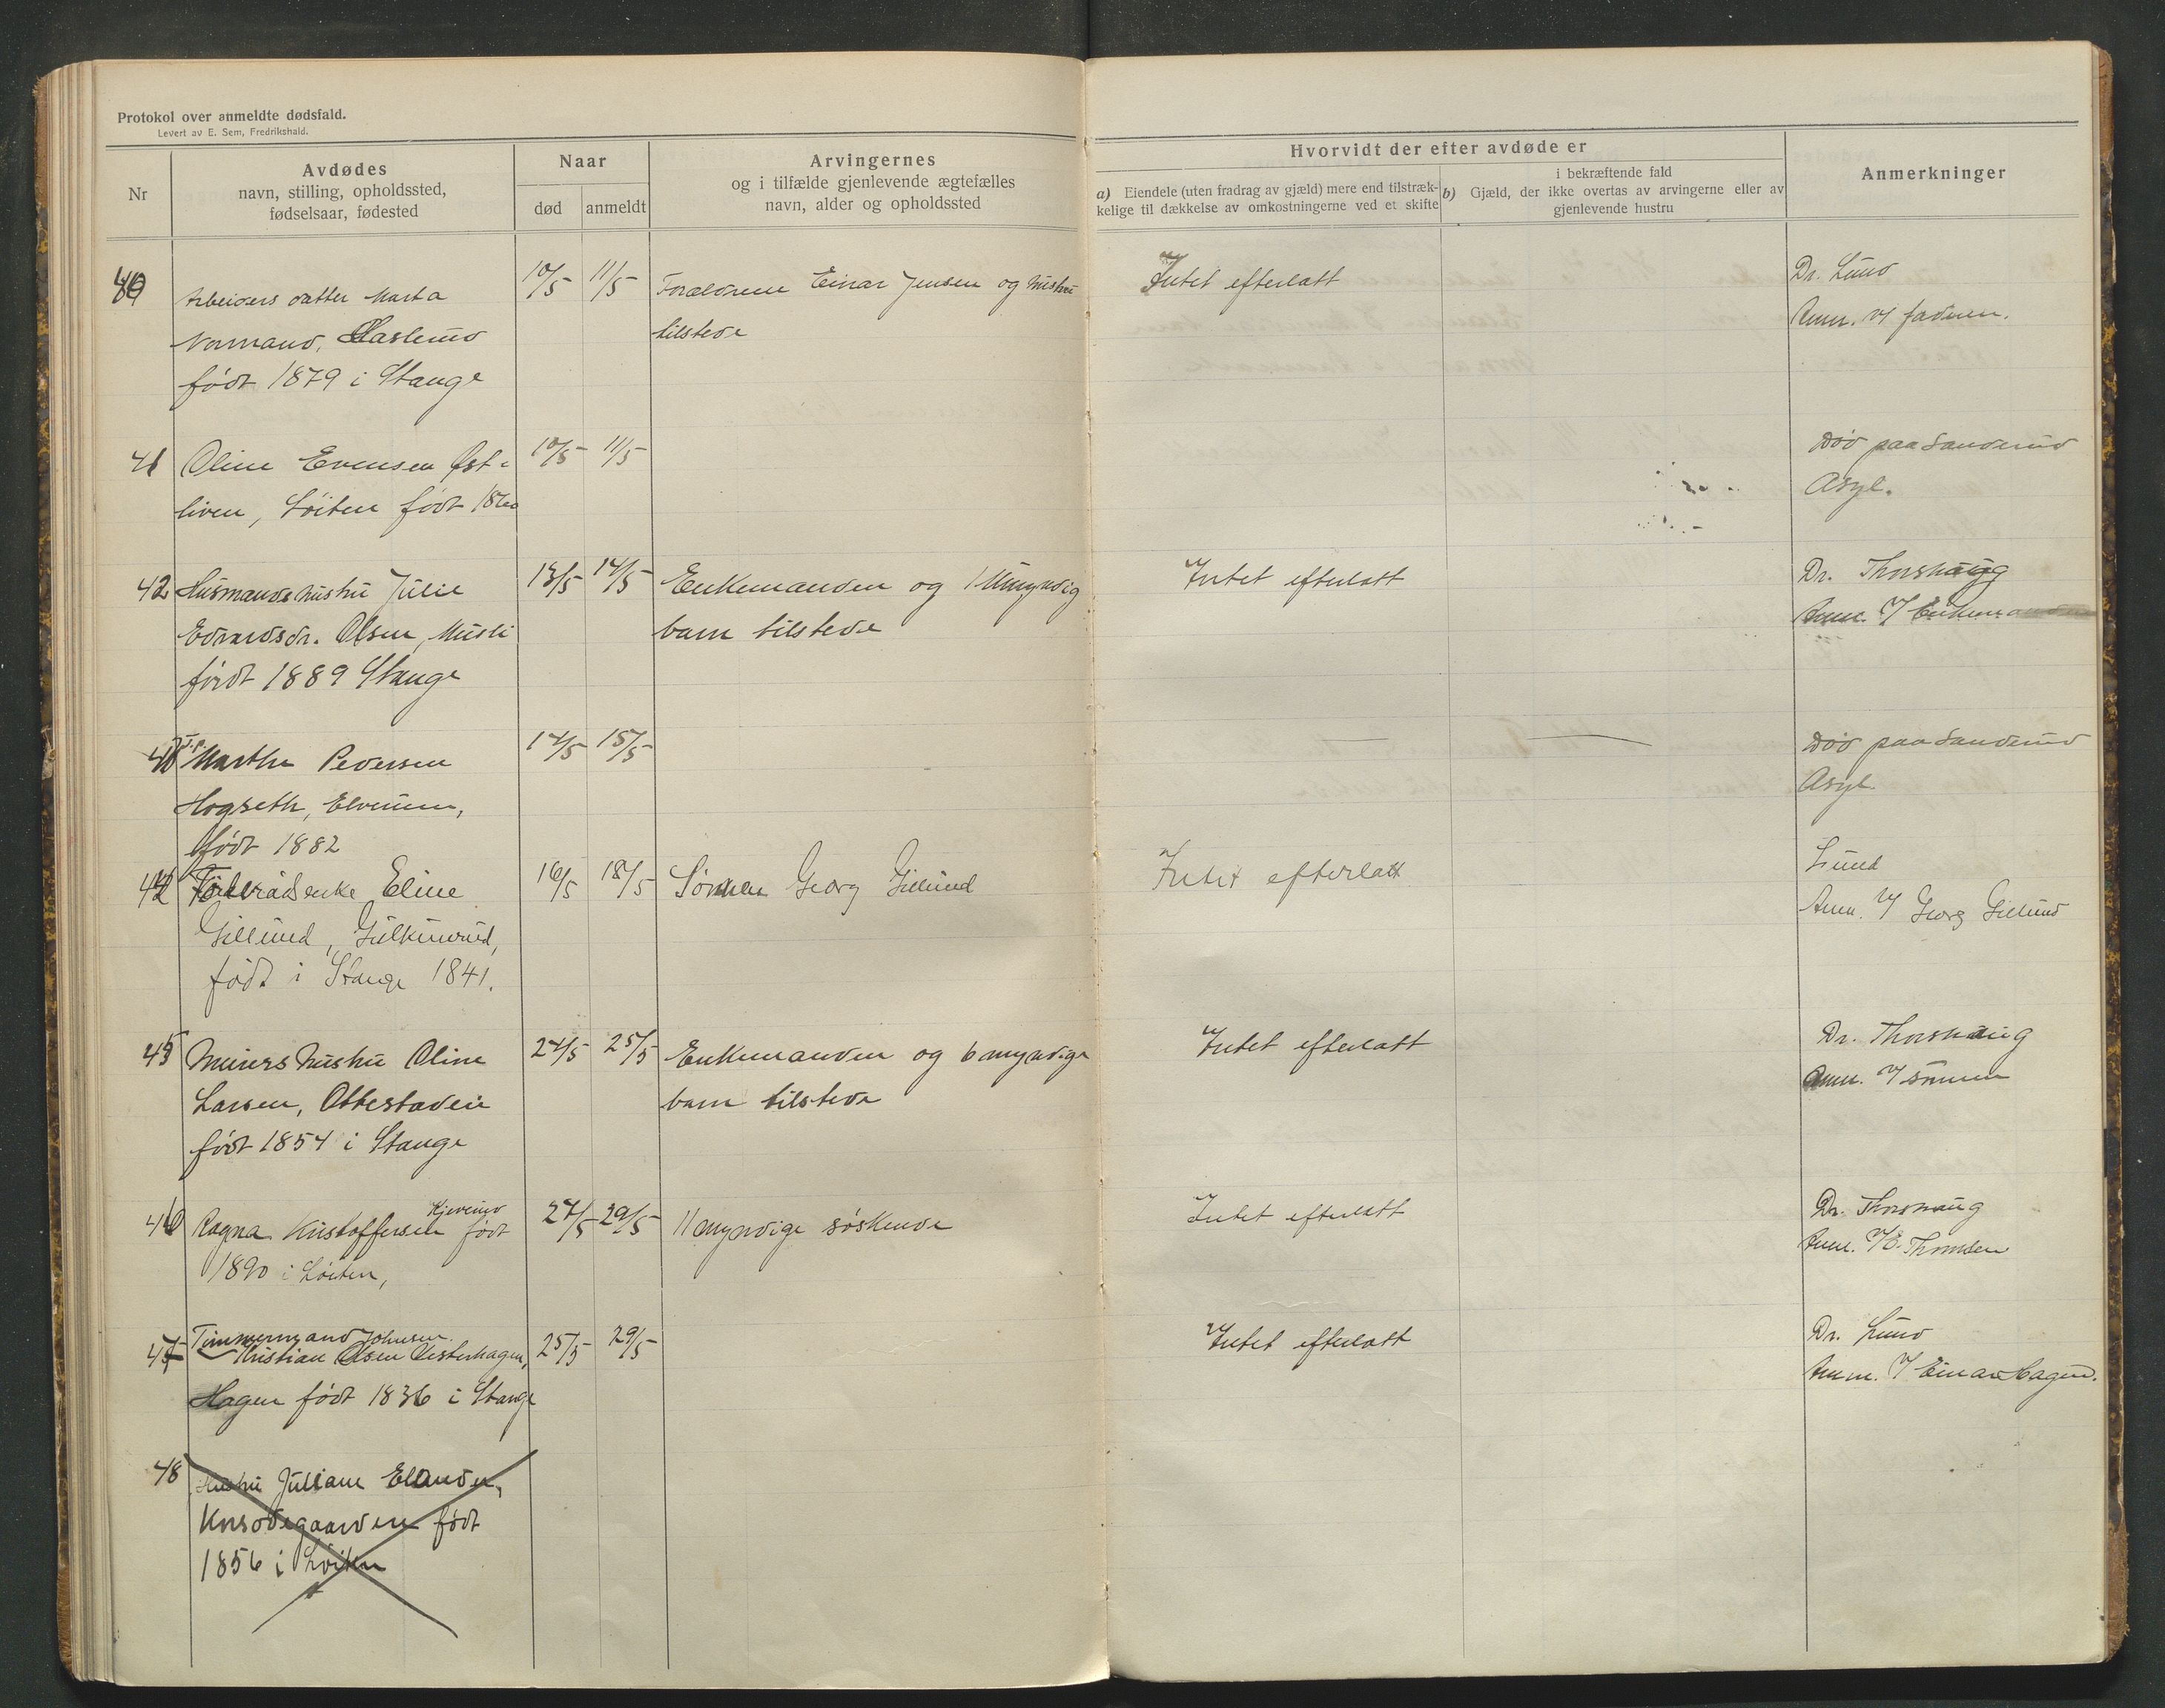 Protokol over anmeldte dødsfald.
Levert av E. Sem, Fredrikshald.
Nr
Avdødes
navn, stilling, opholdssted,
fødselsaar, fødested
Naar
død
anmeldt
Arvingernes
og i tilfælde gjenlevende ægtefælles
navn, alder og opholdssted
Hvorvidt der efter avdøde er
a) Eiendele (uten fradrag av gjæld) mere end tilstræk-
kelige til dækkelse av omkostningerne ved et skifte
i bekræftende fald
b) Gjæld, der ikke overtas av arvingerne eller av
gjenlevende hustru
Anmerkninger
40 Arbeiders datter Marta 10/5 11/5 Forældrene Einar Jensen og hustru Intet efterlatt Dr. Lund
Normand, Haslemo tilstede Anm. v/ faderen.
født 1879 i Stange
41 Oline Evensen Øst- 10/5 11/5 Død paa Sanderud
liven, Løiten født 1860 Asyl.
42 Husmands hustru Julie 13/5 14/5 Enkemanden og 1 umyndig Intet efterlatt Dr. Thorshaug
Edvardsdr. Olsen, Musli barn tilstede Anm. v/ Enkemanden
født 1889 Stange
Marthe Pedersen 14/5 15/5 — — Død paa Sanderud
Hogseth, Elverum, Asyl
født 1882
44 Föderåds enke Eline 16/5 18/5 Sønnen Georg Gillund Intet efterlatt Lund
Gillund, Anm. v/ Georg Gillund
født i Stange 1841.
45 Murers hustru Oline 24/5 25/5 Enkemanden og 6 myndige Intet efterlatt Dr. Thorshaug
Larsen, Ottestaden barn tilstede Anm. v/ sønnen
født 1854 i Stange
Kjeverud
46 Ragna Kristoffersen født 27/5 29/5 11 myndige søskende Intet efterlatt Dr. Thorshaug
1890 i Løiten, Anm. v/ E. Thomsen
Timmermand Johnsen
47 Kristian Olsen Vesterhagen, 25/5 29/5 Intet efterlatt Dr. Lund
Hagen født 1836 i Stange Anm. v/ Einar Hagen.
48 Hustru Juliane Elander,
Korsødegaarden født
1856 i Løiten